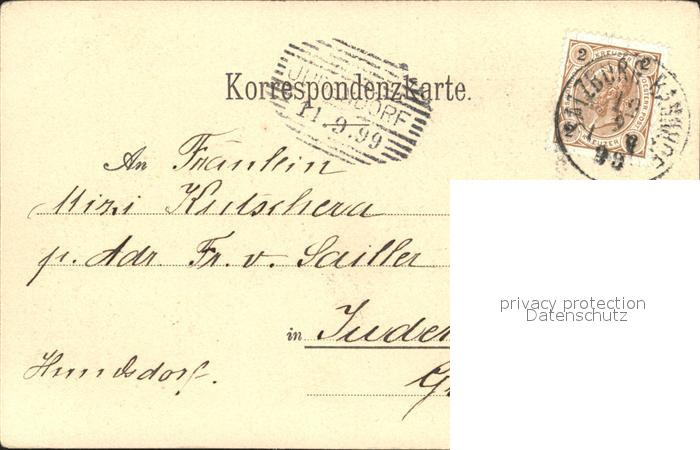 Korrespondenzkarte.
11.9.99
2 KREUZER 2
SALZBURG
99
An Fräulein
Mizi Kutschera
p. Adr. Fr. v. Sailler
in Juden
Hundsdorf.
privacy protection
Datenschutz